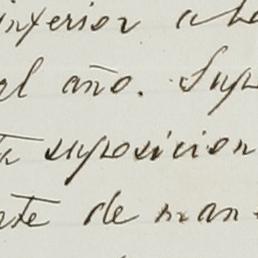 interior
al año. Sup
ta suposicion
este de man-